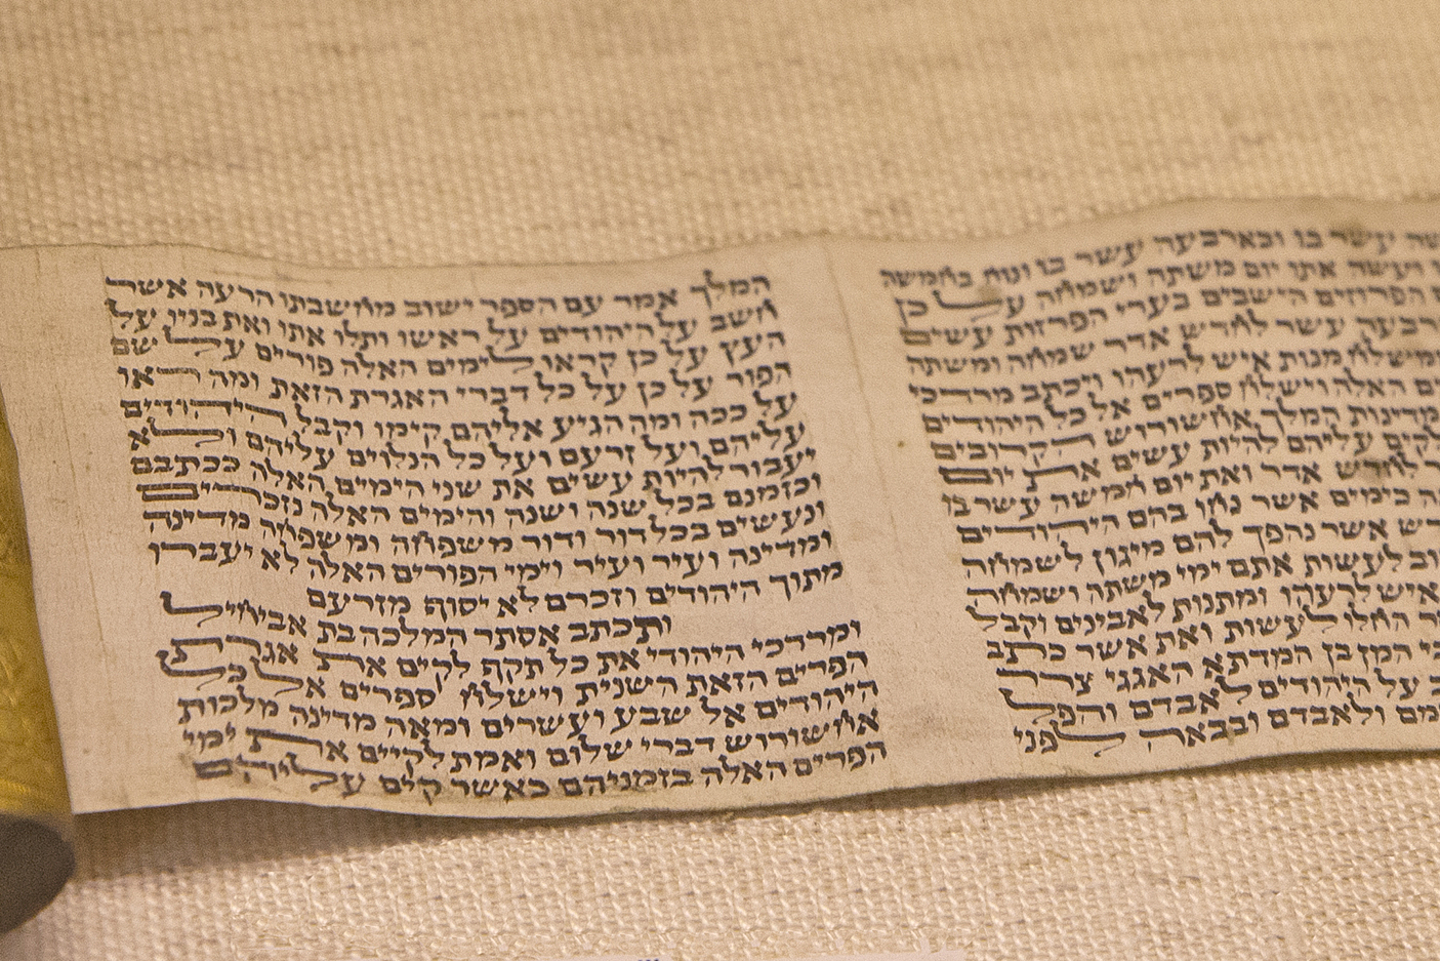 עשר בו ובארבעה עשר בו ונוח בחמשה
ועשה אתו יום משתה ושמחה על כן
הפרוזים הישבים בערי הפרזות עשים
עשר לחדש אדר שמחה ומשתה
ומשלח מנות איש לרעהו ויכתב מרדכי
האלה וישלח ספרים אל כל היהודים
מדינות המלך אחשורוש הקרובים
לקים עליהם להיות עשים את יום
לחדש אדר ואת יום חמשה עשר בו
כימים אשר נחו בהם היהודים
אשר נהפך להם מיגון לשמחה
לעשות אתם ימי משתה ושמחה
איש לרעהו ומתנות לאבינים וקבל
החלו לעשות ואת אשר כתב
כי המן בן המדתא האגגי צרר
על היהודים לאבדם והפל
ולאבדם ובבאה לפני
המלך אמר עם הספר ישוב מחשבתו הרעה אשר
חשב על היהודים על ראשו ותלו אתו ואת בניו על
העץ על כן קראו לימים האלה פורים על שם
הפור על כן על כל דברי האגרת הזאת ומה ראו
על ככה ומה הגיע אליהם קימו וקבל היהודים
עליהם ועל זרעם ועל כל הנלוים עליהם ולא
יעבור להיות עשים את שני הימים האלה ככתבם
וכזמנם בכל שנה ושנה והימים האלה נזכרים
ונעשים בכל דור ודור משפחה ומשפחה מדינה
ומדינה ועיר ועיר וימי הפורים האלה לא יעברו
מתוך היהודים וזכרם לא יסוף מזרעם
ותכתב אסתר המלכה בת אביחיל
ומרדכי היהודי את כל תקף לקים את אגרת
הפרים הזאת השנית וישלח ספרים אל כל
היהודים אל שבע ועשרים ומאה מדינה מלכות
אחשורוש דברי שלום ואמת לקיים את ימי
הפרים האלה בזמניהם כאשר קים עליהם